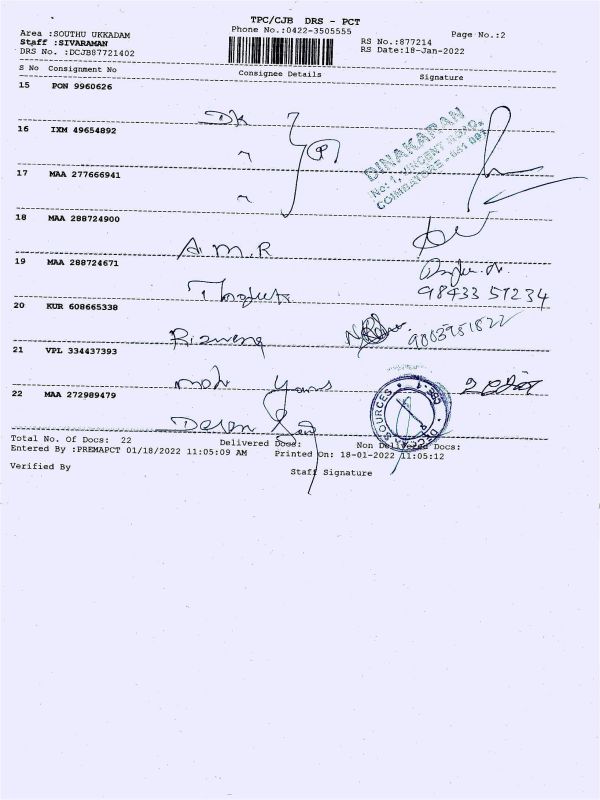 TPC/CJB DRS - PCT
Area :SOUTHU UKKADAM Phone No.:0422-3505555 Page No.:2
Staff :SIVARAMAN RS No.:877214
DRS No. :DCJB87721402 RS Date:18-Jan-2022
S No Consignment No Consignee Details Signature
15 PON 9960626
DK
16 IXM 49654892
DINAKARAN
17 MAA 277666941
COIMBATORE - 641 001
18 MAA 288724900
A.M.R
19 MAA 288724671
98433 51234
20 KUR 608665338
9003951822
21 VPL 334437393
22 MAA 272989479
Total No. Of Docs: 22 Delivered Docs: Non Delivered Docs:
Entered By :PREMAPCT 01/18/2022 11:05:09 AM Printed On: 18-01-2022 11:05:12
Verified By Staff Signature